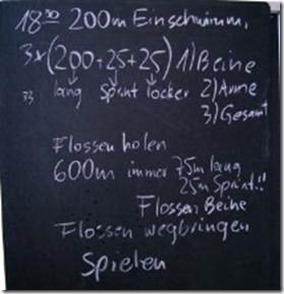 18³⁰ 200m Einschwimm.
3x(200+25+25) 1) Beine
lang sprint locker 2) Arme
3) Gesamt
Flossen holen
600m immer 75m lang
25m Sprint!!
Flossen Beine
Flossen wegbringen
Spielen